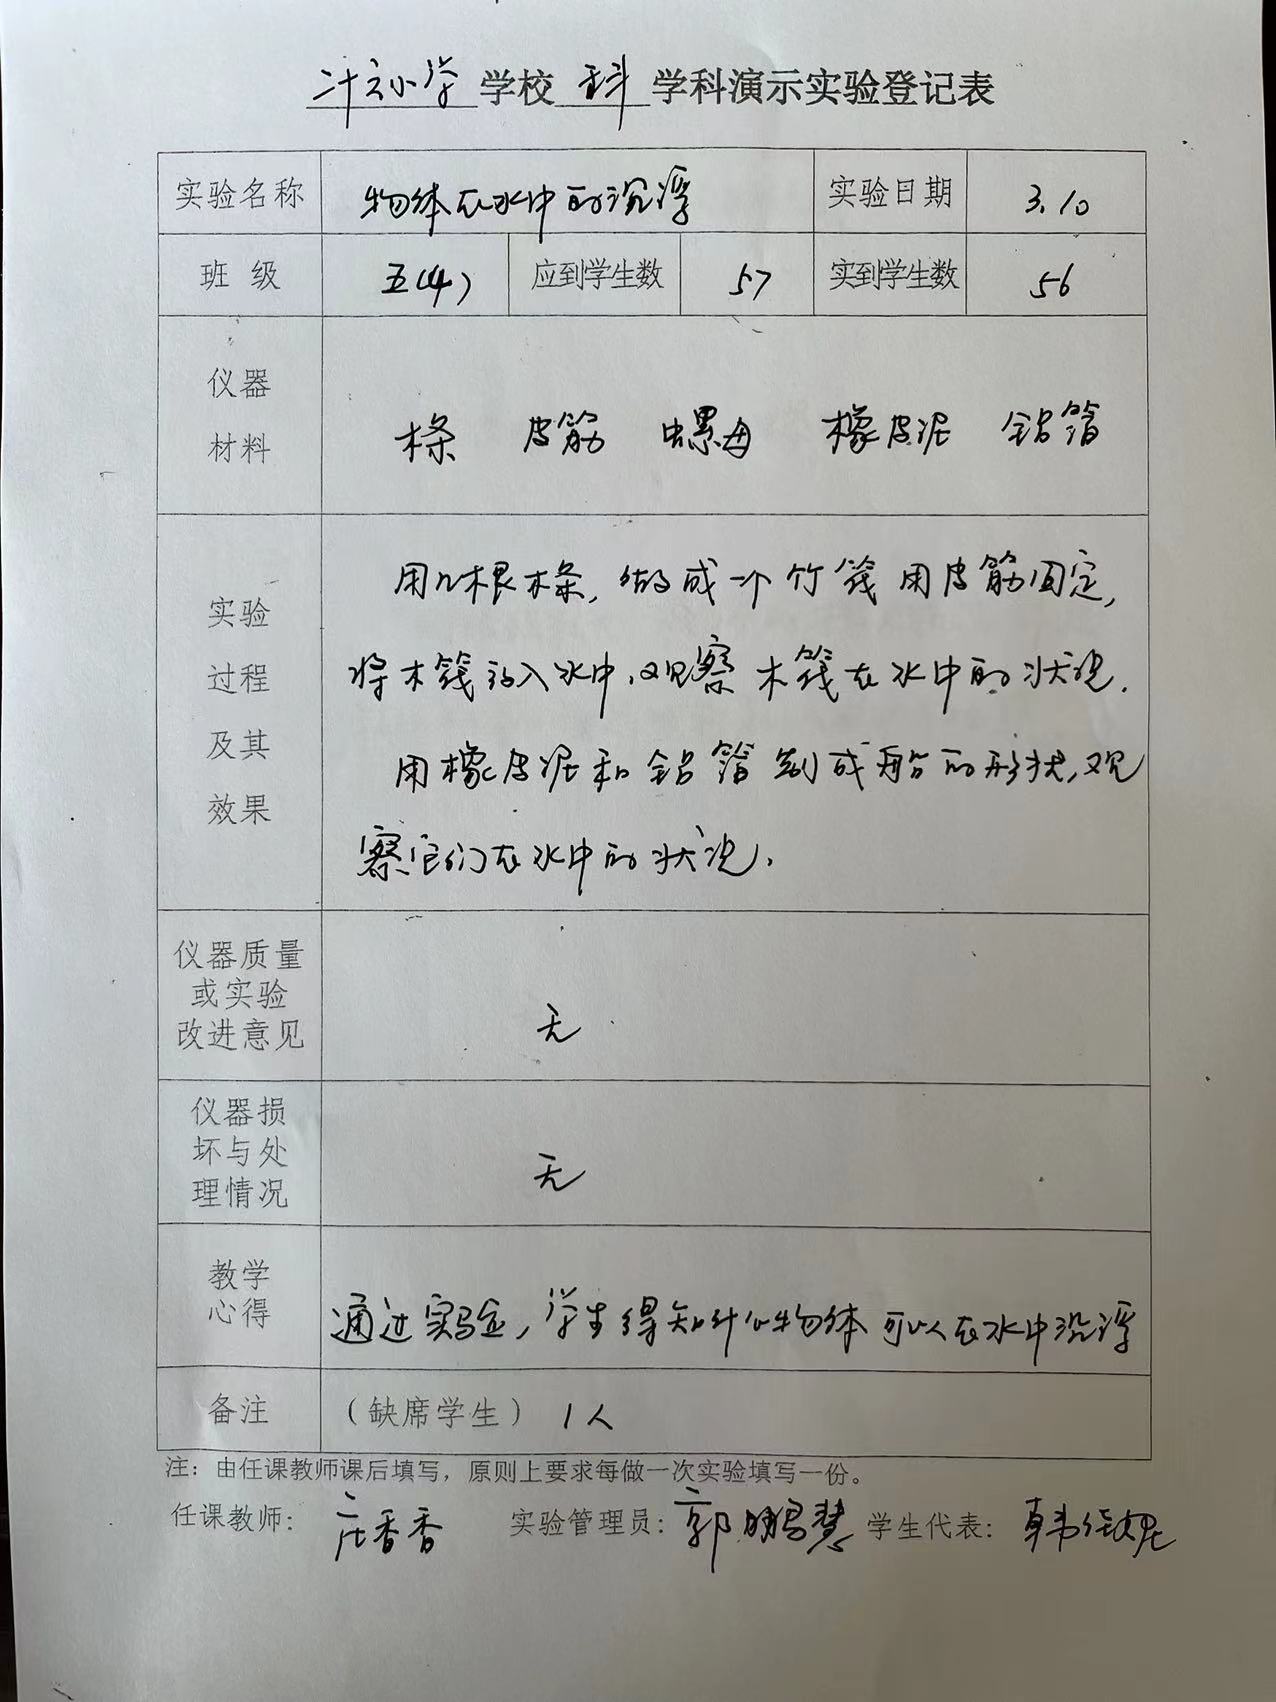 小学 学校 科 学科演示实验登记表
实验名称 物体在水中的沉浮 实验日期 3.10
班 级 五(4) 应到学生数 57 实到学生数 56
仪器
材料
木条 皮筋 螺母 橡皮泥 铝箔
实验
过程
及其
效果
用几根木条,做成一个竹筏用皮筋固定,
将木筏放入水中,观察木筏在水中的状况.
用橡皮泥和铝箔制成船的形状,观
察它们在水中的状况.
仪器质量
或实验
改进意见
无
仪器损
坏与处
理情况
无
教学
心得
通过实验,学生得知什么物体可以在水中沉浮
备注 (缺席学生) 1人
注:由任课教师课后填写,原则上要求每做一次实验填写一份。
任课教师: 庄香香 实验管理员: 郭鹏慧 学生代表: 韩